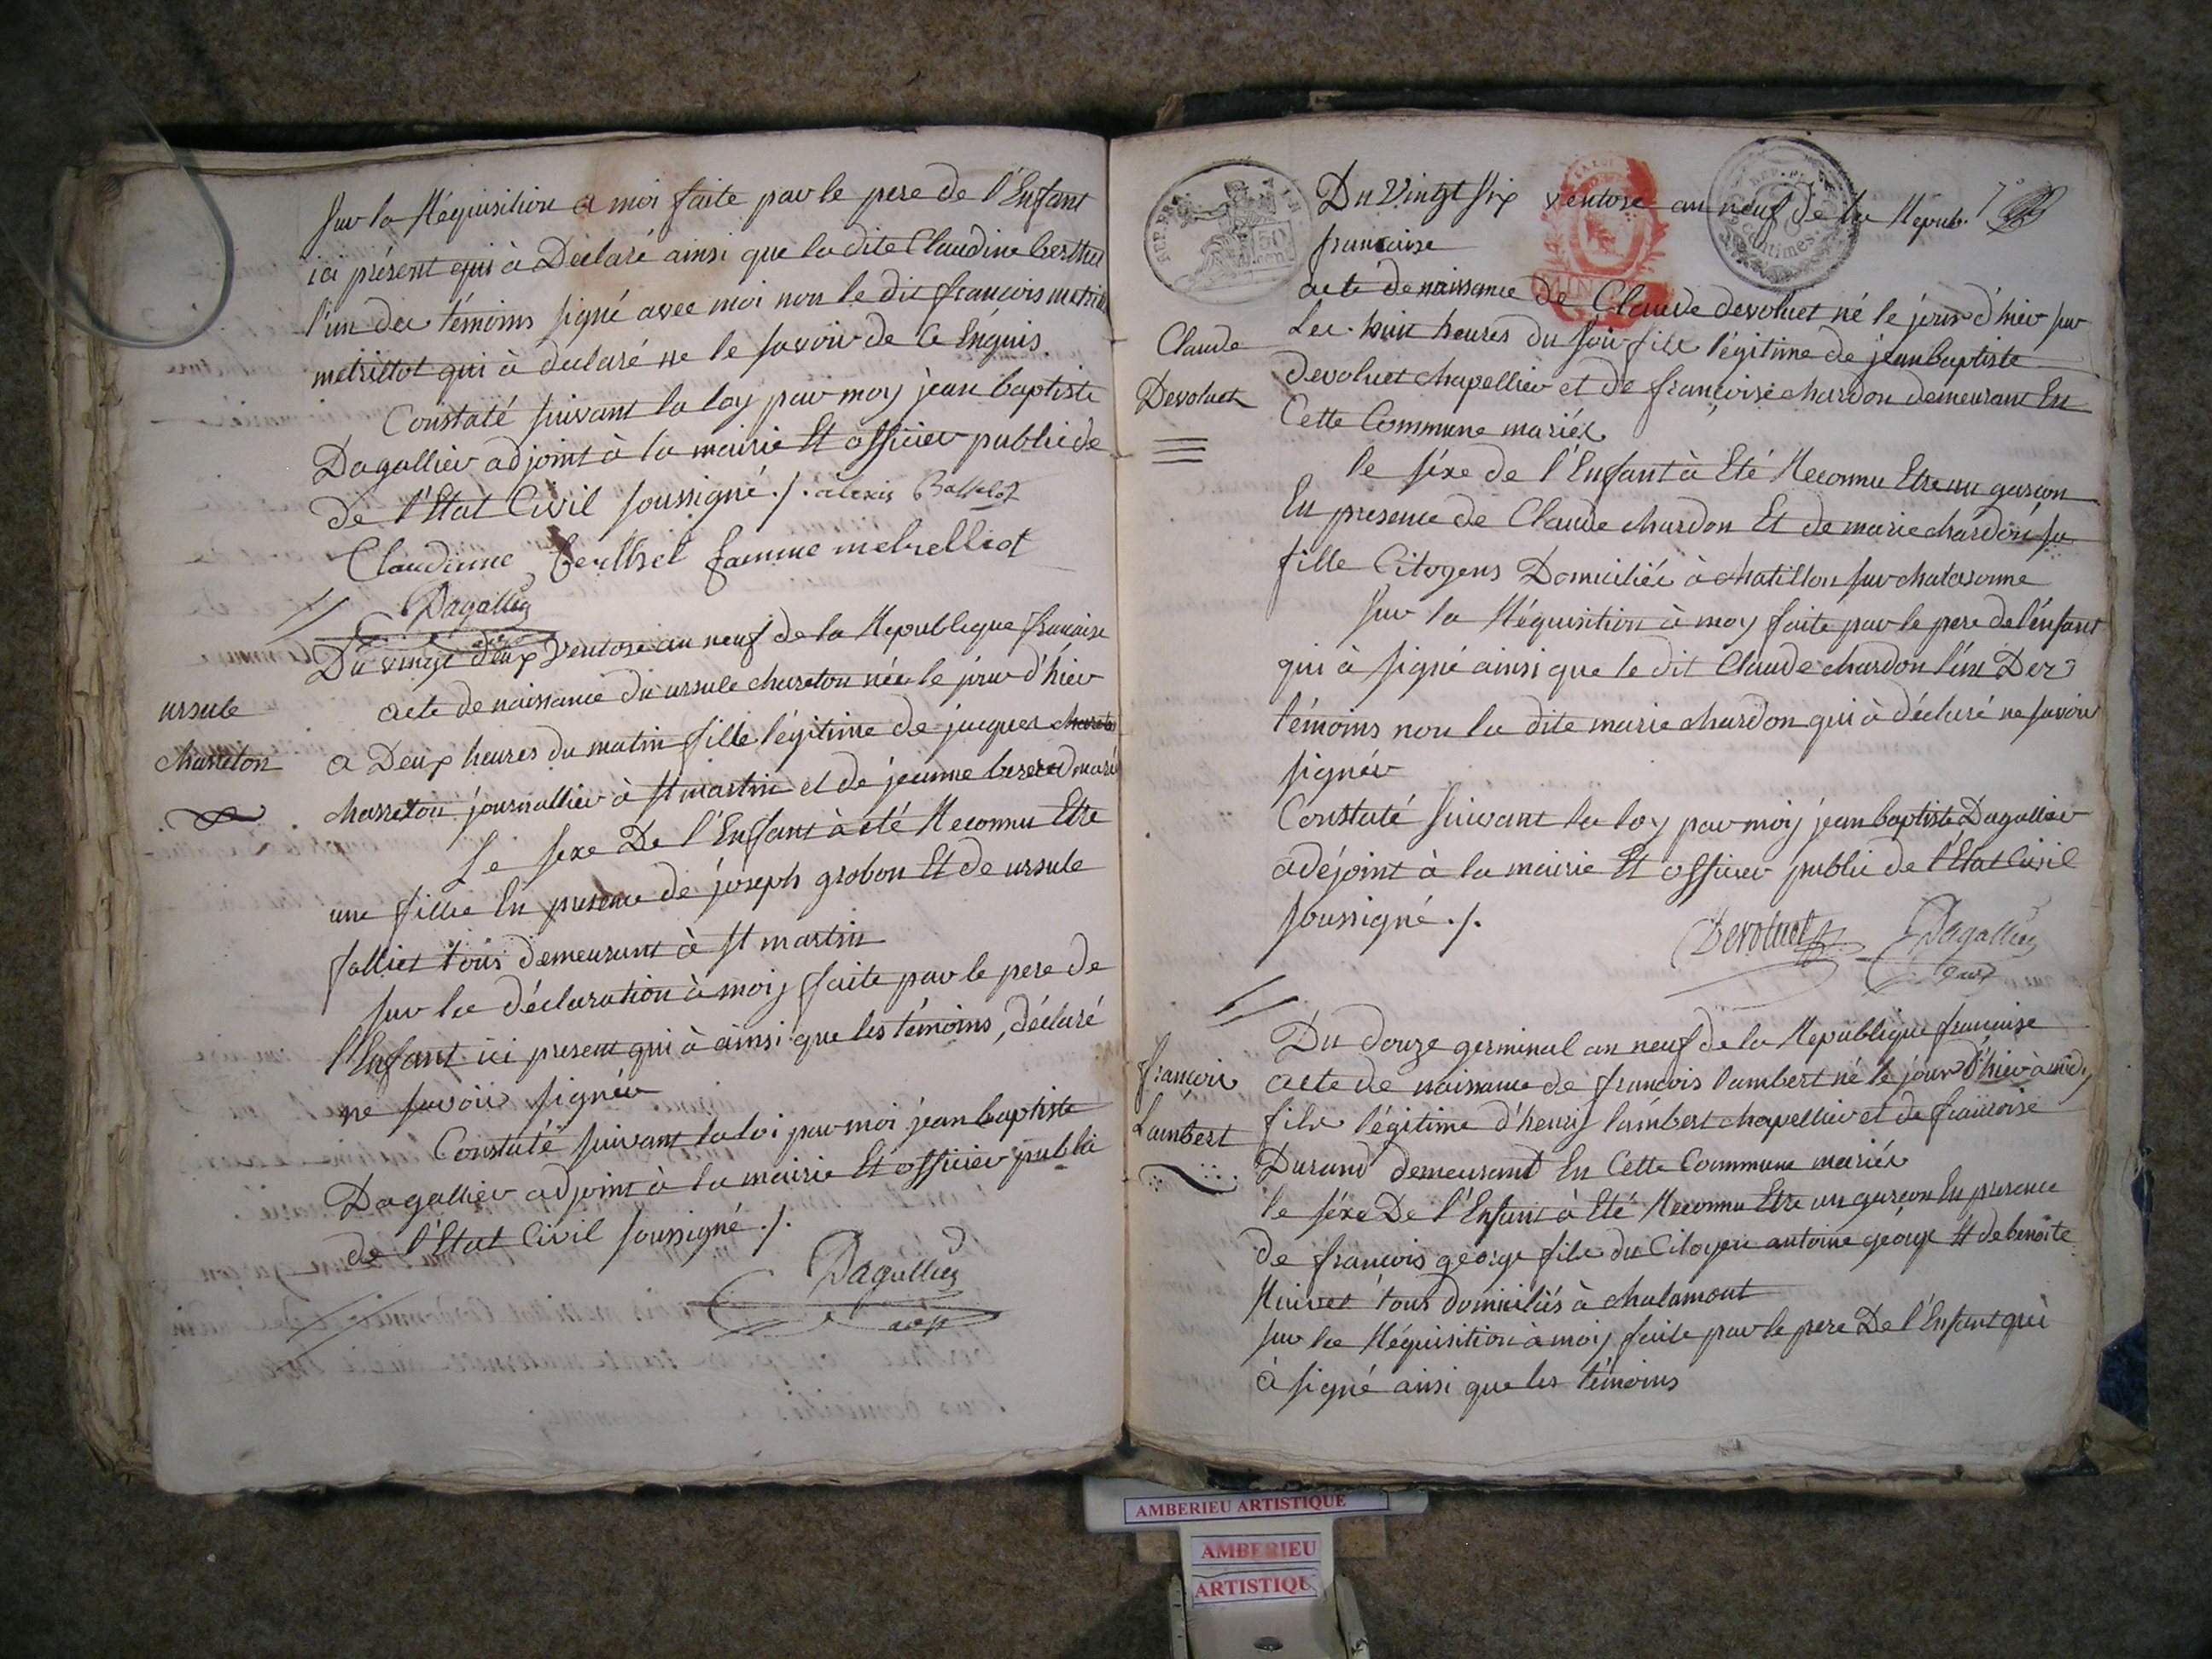 sur la Réquisition a moi faite par le pere de l'Enfant
ici présent qui à Déclaré ainsi que la dite Claudine berthet
l'un des témoins signé avec moi non le dit françois
metrillot qui à declaré ne le savoir de ce Enquis.
Constaté suivant la loy par moy jean baptiste
Dagallier adjoint à la mairie Et officier public de
de l'Etat Civil soussigné ./. alexis
Claudinne berthet famme metrelliot
Dagallier
adjt
Du vingt deux ventose an neuf de la Republique francaise
ursule
charreton
acte de naissance du ursule chareton née le jour d'hier
a Deux heures du matin fille légitime de jacques
charreton journallier à st martin et de jeanne
Le sexe De l'Enfant à été Reconnu Etre
une fille En presence de joseph grobon Et de ursule
falliet tous demeurant à st martin
sur la déclaration à moij faite par le pere de
l'Enfant ici present qui à ainsi que les témoins, déclaré
ne savoir signér
Constaté suivant la loi par moi jean baptiste
Dagallier adjoint à la mairie Et officier public
de l'Etat Civil soussigné ./.
Dagallier
adjt
REP. FRA.
50
cen.
centimes.
Du Vingt six ventose an neuf de la Répub.
francaise
Claude
Devoluet
acte de naissance de Claude devoluet né le jour d'hier sur
Les huit heures du soir fils légitime de jean baptiste
devoluet chapellier et de françoise chardon demeurant En
Cette Commune mariés
le séxe de l'Enfant à Eté Reconnu Etre un garçon
En presence de Claude chardon Et de marie chardon sa
fille Citoyens Domiciliés à chatillon sur chalaronne
sur la Réquisition à moy faite par le pere de l'énfant
qui à signé ainsi que le dit Claude chardon l'un Des
témoins non la dite marie chardon qui à déclaré ne savoir
signér
Constaté suivant la loy par moij jean baptiste Dagallier
adéjoint à la mairie Et officier public de l'Etat Civil
soussigné ./.
Devoluet Dagallier
adjt
Du douze germinal an neuf de la République francaise
françois
Lambert
acte de naissance de françois lambert né le jour d'hier à midy
fils légitime d'henrij lambert chapellier et de francoise
Durand demeurant En Cette Commune mariés
le séxe De l'Enfant à Eté Reconnu Etre un garçon En presence
de francois george fils du Citoyen antoine géorge Et de benoite
Rivet tous domiciliés à chalamont
sur la Réquisition à moij faite par le pere De l'Enfant qui
à signé ainsi que les témoins
AMBERIEU ARTISTIQUE
AMBERIEU
ARTISTIQU